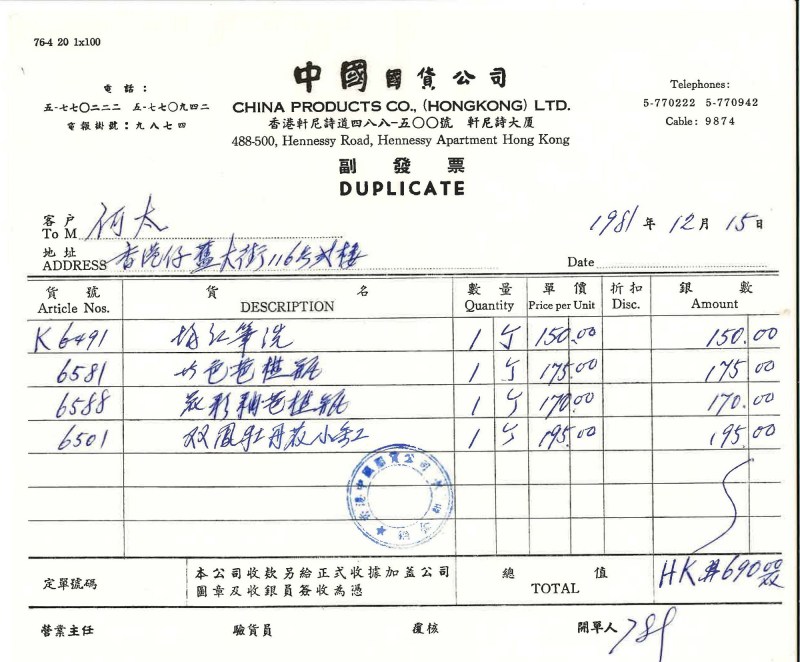 76-4 20 1x100
中國國貨公司
電話：
五-七七〇二二二 五-七七〇九四二
電報掛號：九八七四
CHINA PRODUCTS CO., (HONGKONG) LTD.
香港軒尼詩道四八八-五〇〇號 軒尼詩大厦
488-500, Hennessy Road, Hennessy Apartment Hong Kong
Telephones:
5-770222 5-770942
Cable: 9874
副發票
DUPLICATE
客户 To M 何太
1981年12月15日
地址 ADDRESS 香港仔舊大街116号弍樓
Date
貨號 貨名 數量 單價 折扣 銀數
Article Nos. DESCRIPTION Quantity Price per Unit Disc. Amount
K6491 筆洗 1 150.00 150.00
6581 1 175.00 175.00
6588 1 170.00 170.00
6501 双鳳牡丹 小缸 1 195.00 195.00
香港中國國貨公司
定單號碼 本公司收款另給正式收據加蓋公司 總值 HK$690.00
圖章及收銀員簽收為憑 TOTAL
營業主任 驗貨員 覆核 開單人 789